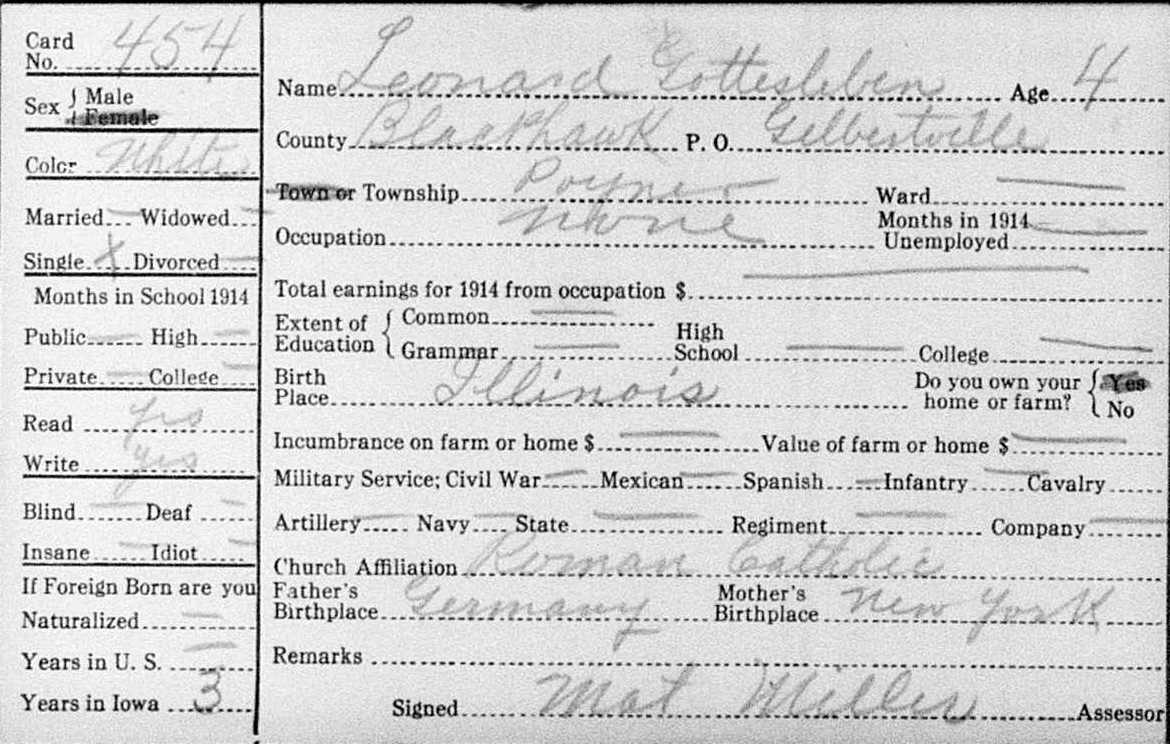 Card No. 454
Sex { Male
Female
Color White
Married Widowed
Single X Divorced
Months in School 1914
Public High
Private College
Read yes
Write yes
Blind Deaf
Insane Idiot
If Foreign Born are you
Naturalized
Years in U. S.
Years in Iowa 3
Name Leonard Gottesleben Age 4
County Blackhawk P. O. Gilbertville
Town or Township Poyner Ward
Occupation None Months in 1914 Unemployed
Total earnings for 1914 from occupation $
Extent of Education { Common
Grammar High School College
Birth Place Illinois Do you own your home or farm? { Yes
No
Incumbrance on farm or home $ Value of farm or home $
Military Service; Civil War Mexican Spanish Infantry Cavalry
Artillery Navy State Regiment Company
Church Affiliation Roman Catholic
Father's Birthplace Germany Mother's Birthplace New York
Remarks
Signed Mat Miller Assessor